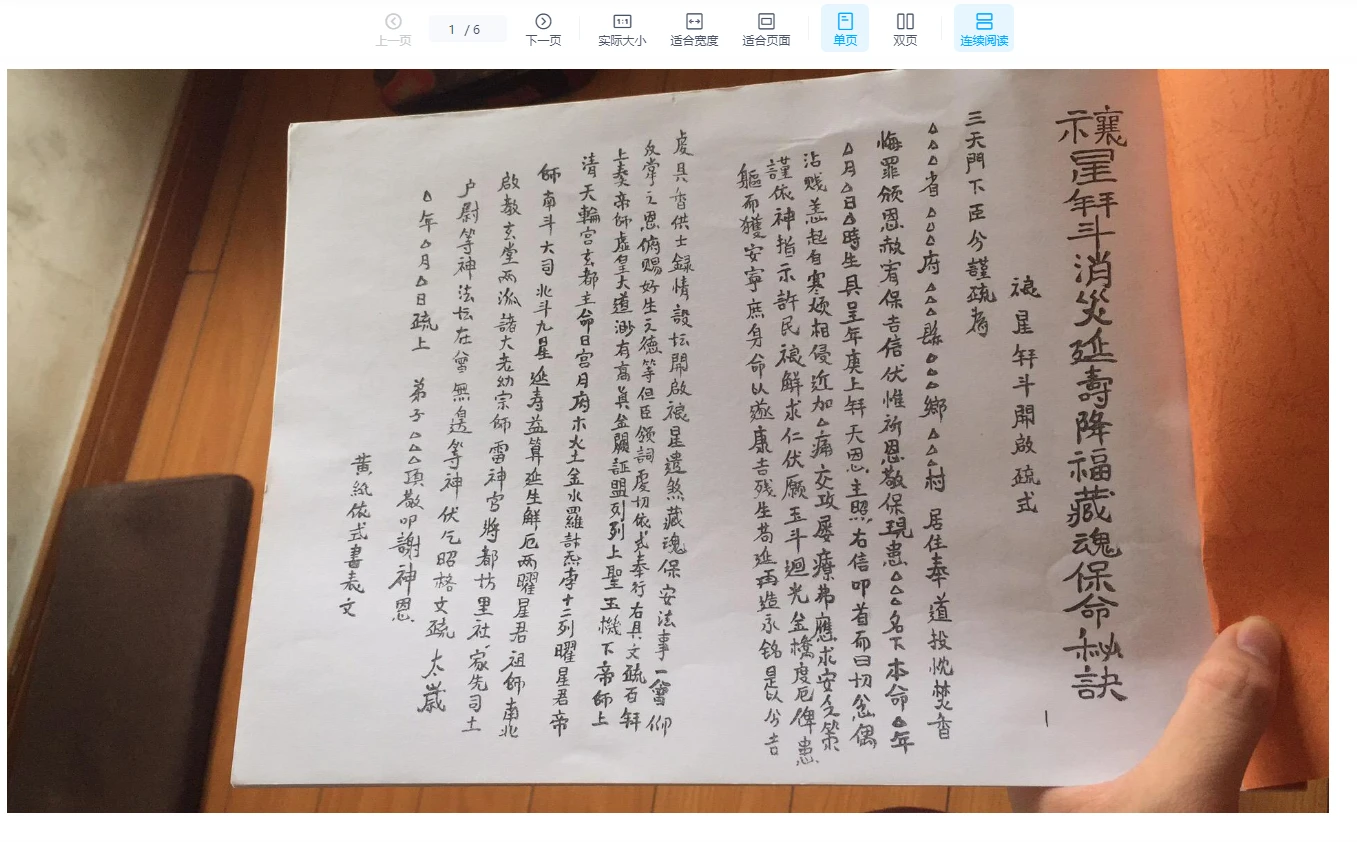 上一页
1 / 6
下一页
实际大小
适合宽度
适合页面
单页
双页
连续阅读
禳星拜斗消災延壽降福藏魂保命秘訣
禳星拜斗開啟疏式
三天門下臣兮謹疏為
△△△省△△△府△△△縣△△△鄉△△△村 居住奉道投忱焚香
悔罪领恩赦宥保吉信伏惟所恩敬保現患△△△名下本命△年
△月△日△時生具呈年庚上拜天恩主照右信叩首而曰切念偶
沾贱恙起自寒 相侵近加△痛交攻屡療弗應求安乏策
謹依神指示許民禳解求仁伏願玉斗迴光金橋度厄俾患
軀而獲安寧庶身命以遂康吉残生苟延再造永銘是以兮吉
虔具香供士録情設坛開啟禳星遣煞藏魂保安法事一會仰
之恩俯賜好生之德等但臣领詞虔切依式奉行右具文疏百拜
上奏帝師虚皇大道渺有高真金闕証盟列列上聖玉機下帝師上
清天輪宫玄都主命日宫月府木火土金水羅計炁孛十二列曜星君帝
師南斗六司北斗九星延寿益算延生解厄两曜星君祖師南北
啟教玄堂两派諸大老幼宗師雷神官將都坊里社家先司土
户尉等神法坛在會無邊等神伏乞昭格文疏 太歲
△年△月△日疏上 弟子△△△頂敬叩謝神恩
黄紙依式書表文
1